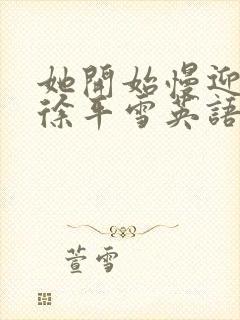 她開始慢迎
徐平雪英語
萱雪